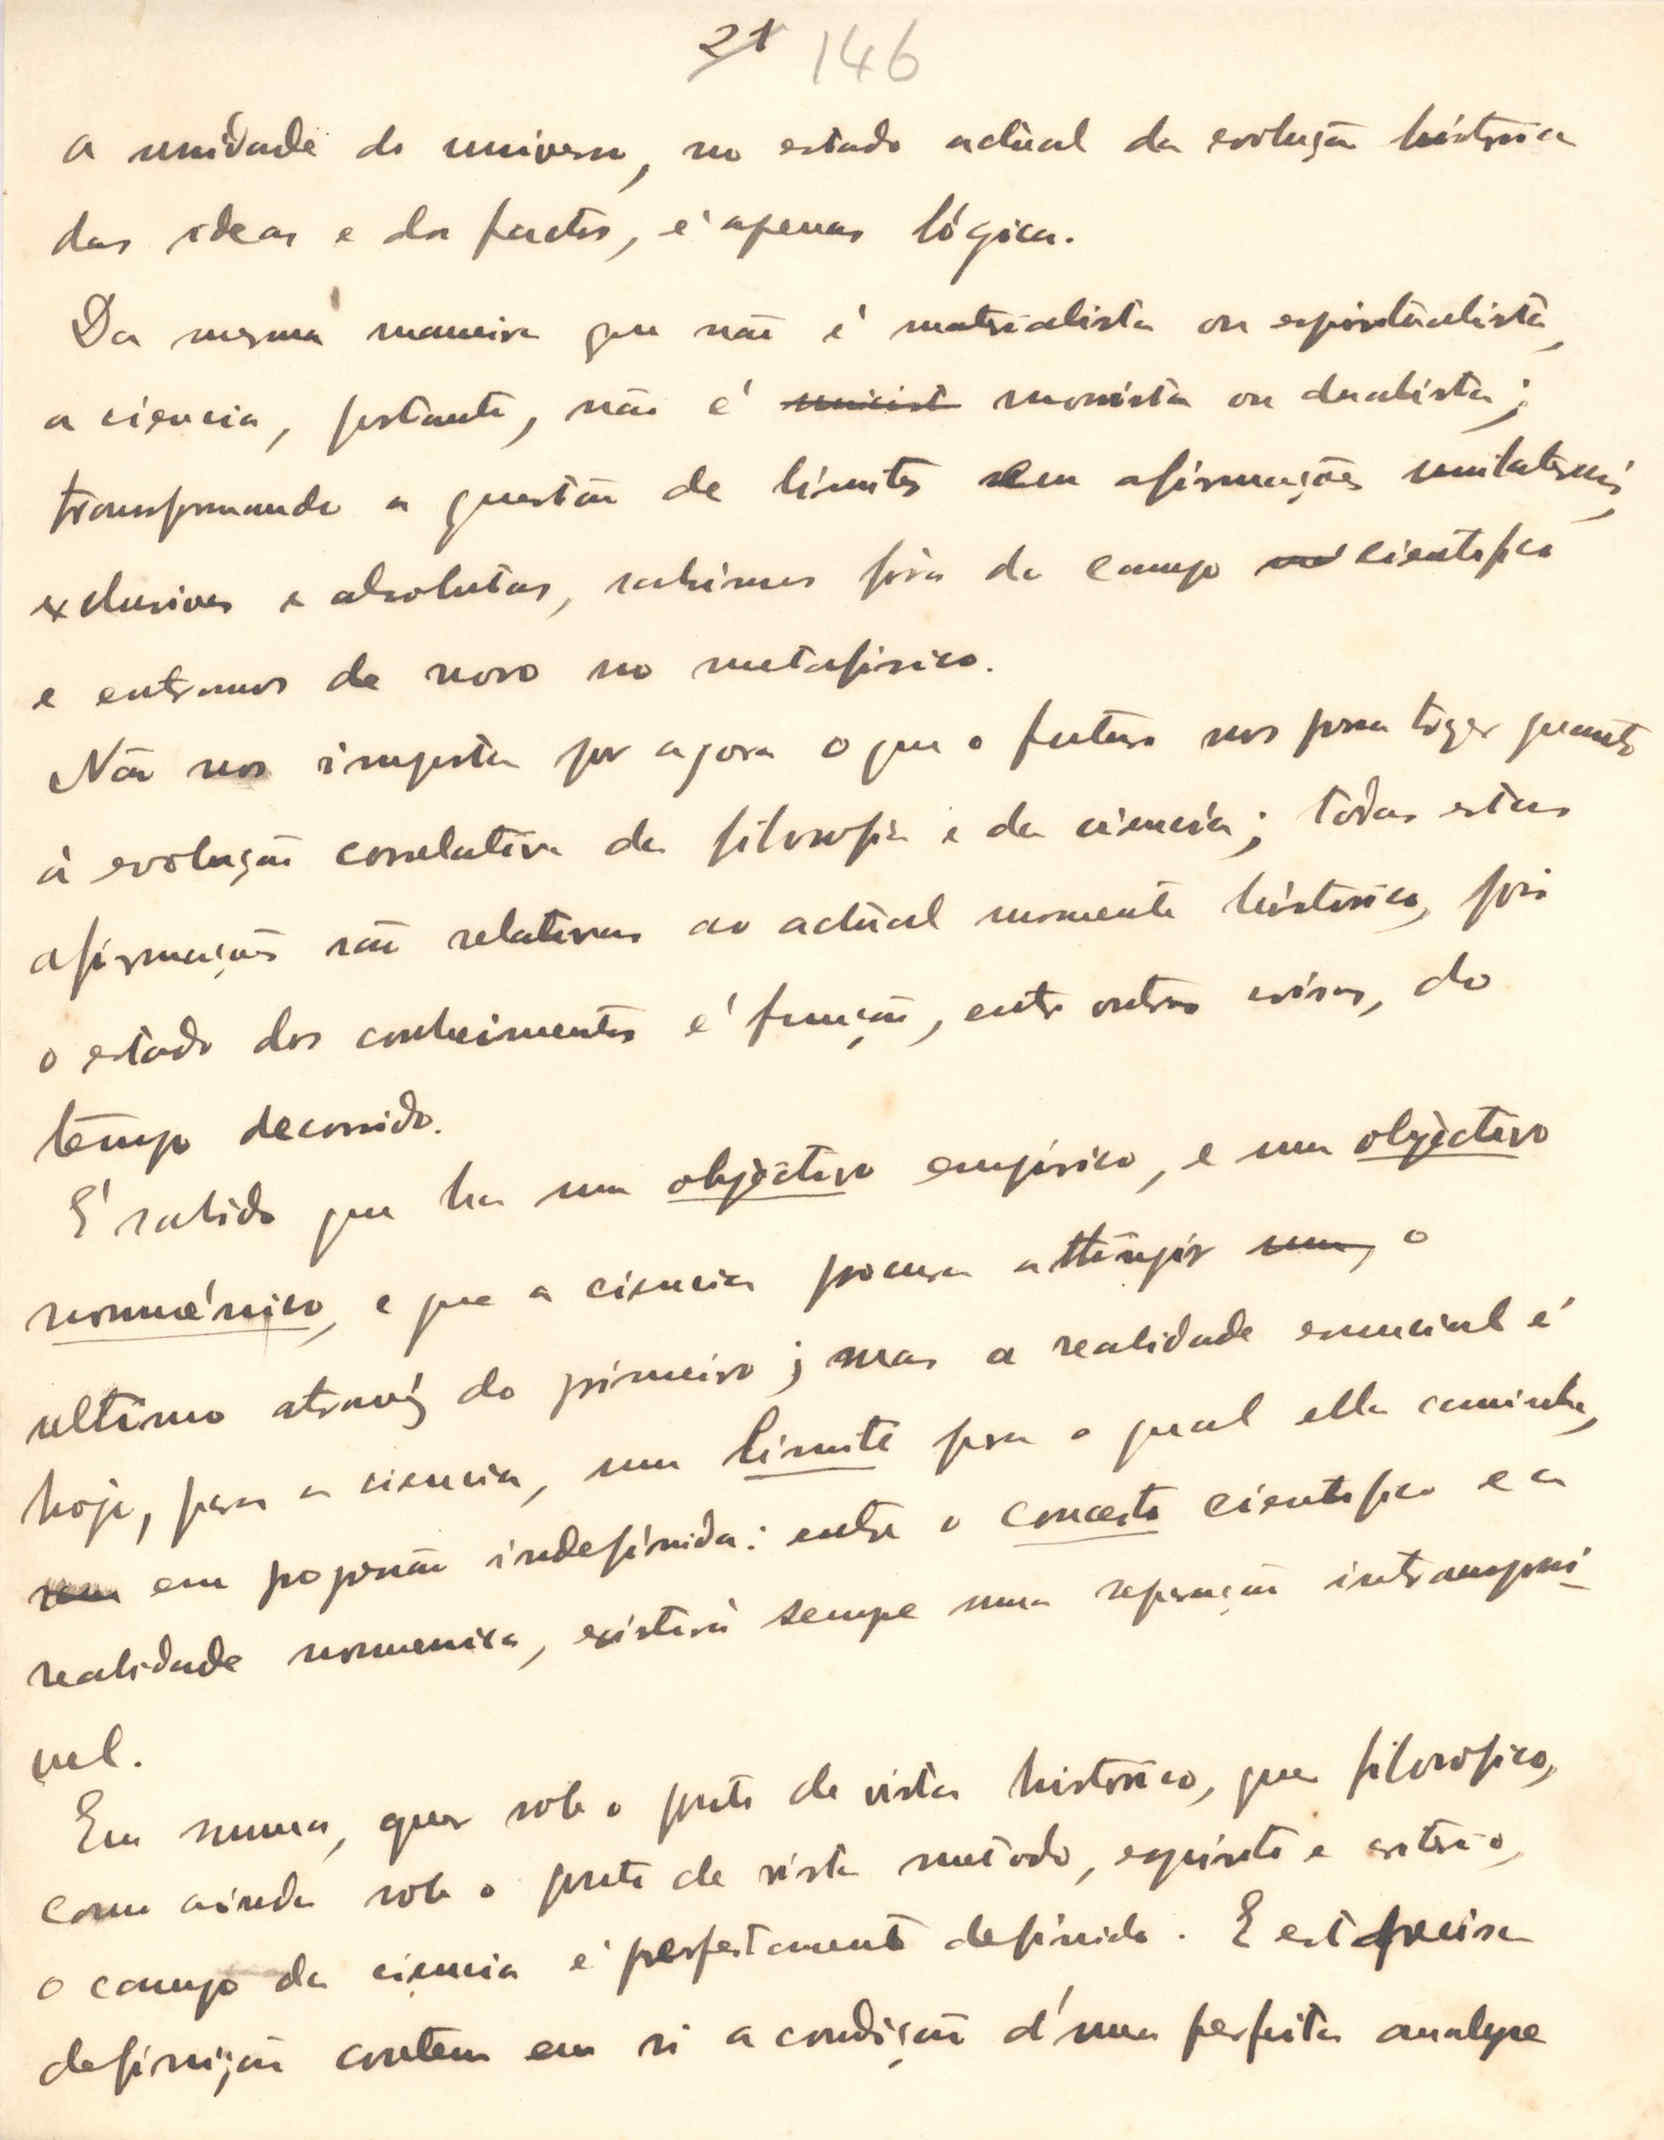 21 146
a unidade do universo, no estado actual da evolução histórica
das ideas e dos factos, é apenas lógica.
Da mesma maneira que não é materialista ou espiritualista,
a ciencia, portanto, não é monista ou dualista;
transformando a questão de limites em afirmações unilaterais,
exclusivas e absolutas, sahimos fóra do campo cientifico
e entramos de novo no metafisico.
Não nos importa por agora o que o futuro nos possa trazer quanto
á evolução correlativa da filosofia e da ciencia; todas estas
afirmações são relativas ao actual momento histórico, pois
o estado dos conhecimentos é função, entre outras coisas, do
tempo decorrido.
É sabido que ha um objectivo empirico, e um objectivo
nouménico, e que a ciencia procura attingir o
ultimo através do primeiro; mas a realidade essencial é
hoje, para a ciencia, um limite para o qual ella caminha,
em progressão indefinida: entre o conceito cientifico e a
realidade noumenica, existirá sempre uma separação intransponi-
vel.
Em summa, quer sob o ponto de vista historico, quer filosofico,
como ainda sob o ponto de vista metodo, espirito e criterio,
o campo da ciencia é perfeitamente definido. E esta precisa
definição contem em si a condição d'uma perfeita analyse